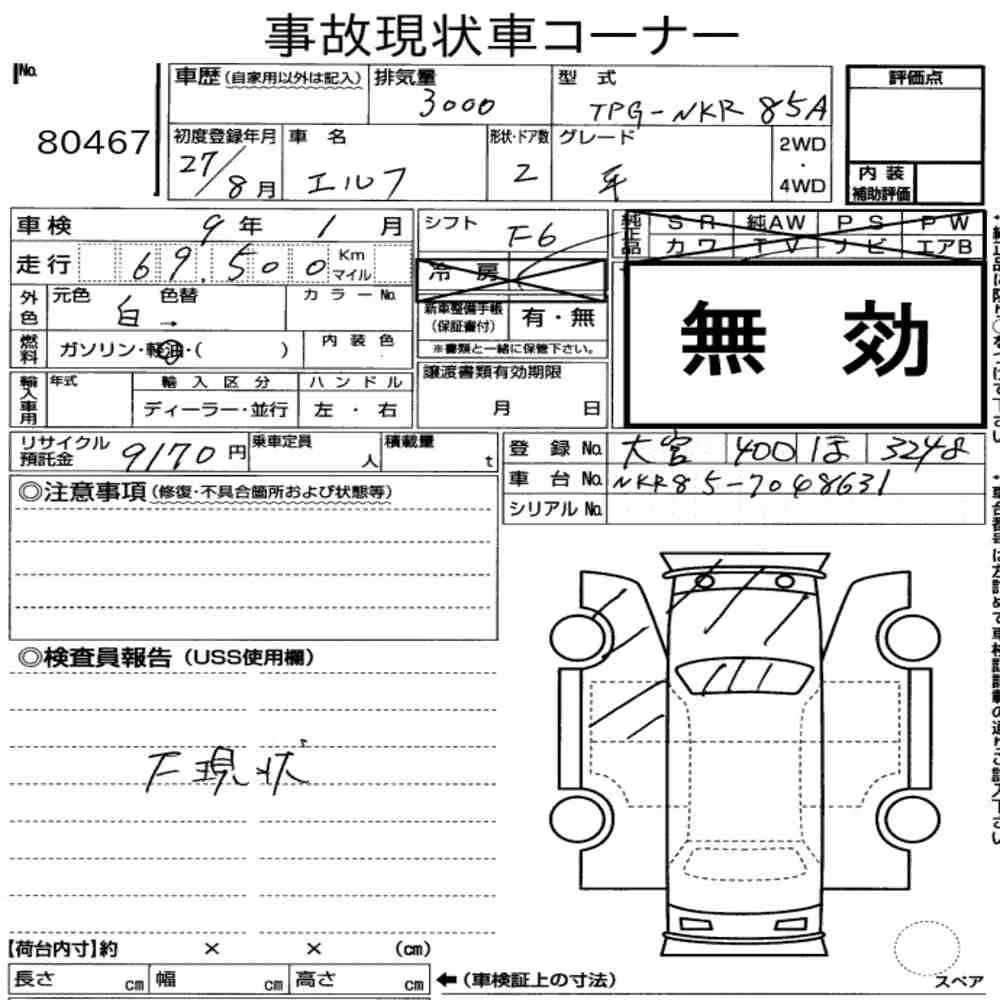 事故現状車コーナー
No.
80467
車歴(自家用以外は記入)
排気量
3000
型式
TPG-NKR 85A
評価点
初度登録年月
27/8月
車名
エルフ
形状・ドア数
2
グレード
2WD
・
4WD
内装
補助評価
車検 9年 1月
走行 69.500 Km マイル
外色
元色
白
色替
→
カラーNo.
燃料
ガソリン・軽油・( )
内装色
輸入車用
年式
輸入区分
ディーラー・並行
ハンドル
左・右
シフト
F6
冷房
新車整備手帳
(保証書付)
有・無
※書類と一緒に保管下さい。
譲渡書類有効期限
月 日
純正品
SR 純AW PS PW
カワ TV ナビ エアB
無効
リサイクル
預託金
9170円
乗車定員
人
積載量
t
登録No. 大宮 400 ほ
車台No. NKR85-7048631
シリアルNo.
◎注意事項(修復・不具合箇所および状態等)
◎検査員報告(USS使用欄)
下現状
【荷台内寸】約 × × (cm)
長さ cm 幅 cm 高さ cm
←(車検証上の寸法)
スペア